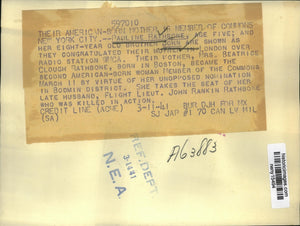 597010
THEIR AMERICAN-BORN MOTHER IS MEMBER OF COMMONS
NEW YORK CITY--PAULINE RATHBONE, AGE FIVE; AND
HER EIGHT-YEAR OLD BROTHER JOHN ARE SHOWN AS
THEY CONGRATULATED THEIR MOTHER IN LONDON OVER
RADIO STATION WMCA. THEIR MOTHER, MRS. BEATRICE
CLOUGH RATHBONE, BORN IN BOSTON, BECAME THE
SECOND AMERICAN-BORN WOMAN MEMBER OF THE COMMONS
MARCH 11 BY VIRTUE OF HER UNOPPOSED NOMINATION
IN BODMIN DISTRICT. SHE TAKES THE SEAT OF HER
LATE HUSBAND, FLIGHT LIEUT. JOHN RANKIN RATHBONE
WHO WAS KILLED IN ACTION.
CREDIT LINE (ACME) 3-11-41 BUR DJH FOR MX
(SA) SJ JAP #1 70 CAN LV MIL
A63883
REF. DEPT
3-14-41
N.E.A.
historicimages.com